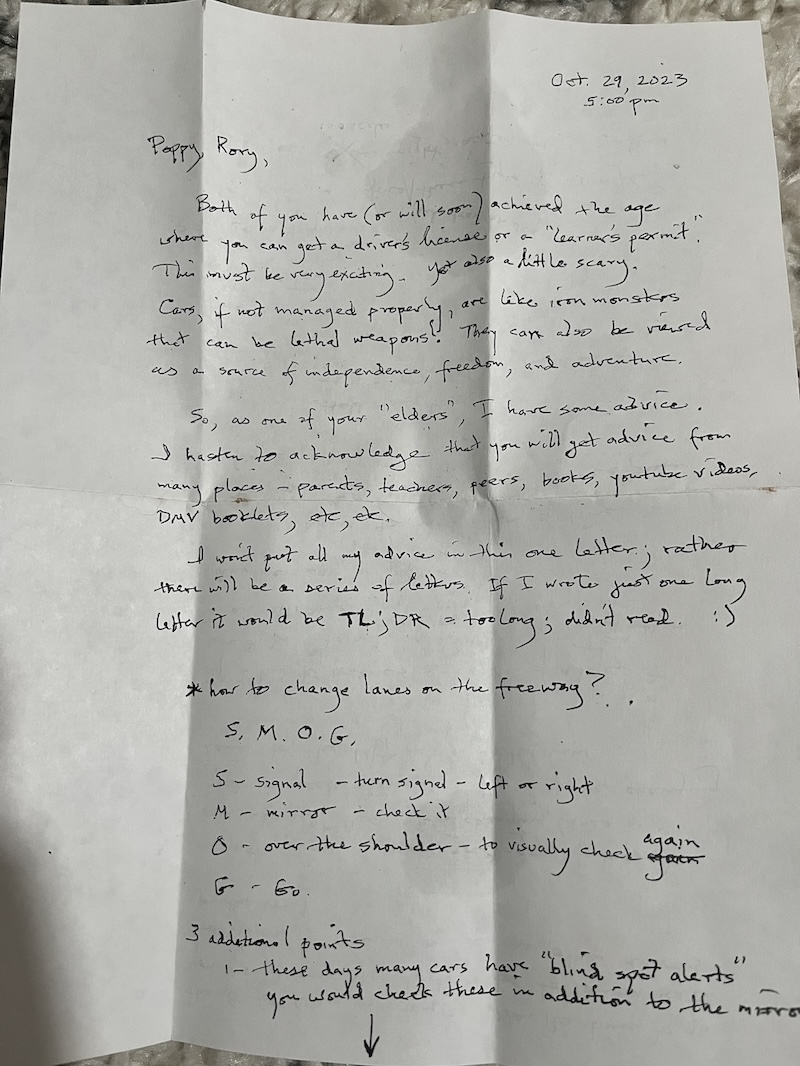 Oct. 29, 2023
5:00 pm
Poppy, Rory,
Both of you have (or will soon) achieved the age
where you can get a driver's license or a "learner's permit".
This must be very exciting. Yet also a little scary.
Cars, if not managed properly, are like iron monsters
that can be lethal weapons! They can also be viewed
as a source of independence, freedom, and adventure.
So, as one of your "elders", I have some advice.
I hasten to acknowledge that you will get advice from
many places - parents, teachers, peers, books, youtube videos,
DMV booklets, etc, etc.
I won't put all my advice in this one letter; rather
there will be a series of letters. If I wrote just one long
letter it would be TL;DR = too long; didn't read. :)
* how to change lanes on the freeway?
S. M. O. G.
S - signal - turn signal - left or right
M - mirror - check it
O - over the shoulder - to visually check again
G - Go.
3 additional points
1 - these days many cars have "blind spot alerts"
you would check these in addition to the mirror
↓